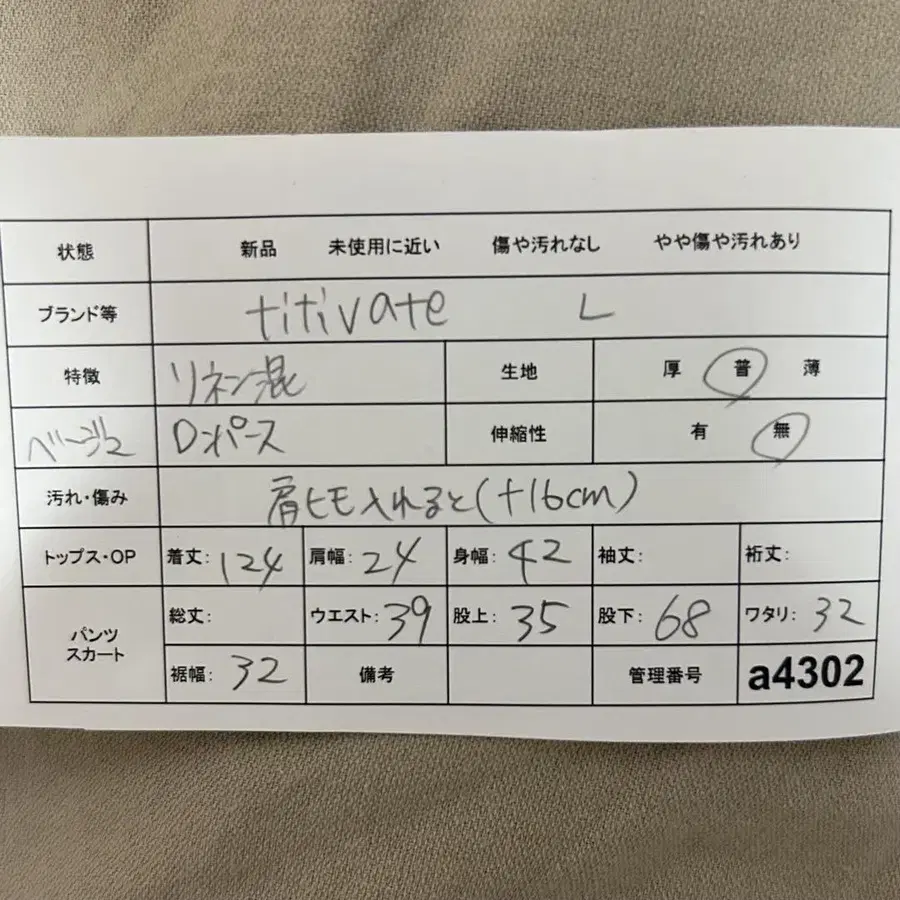 状態 新品 未使用に近い 傷や汚れなし やや傷や汚れあり
ブランド等 titivate L
特徴 リネン混 生地 厚 普 薄
ベージュ ロンパース 伸縮性 有 無
汚れ・傷み 肩ヒモ入れると(+16cm)
トップス・OP 着丈: 124 肩幅: 24 身幅: 42 袖丈: 裄丈:
パンツ スカート 総丈: ウエスト: 39 股上: 35 股下: 68 ワタリ: 32
裾幅: 32 備考 管理番号 a4302